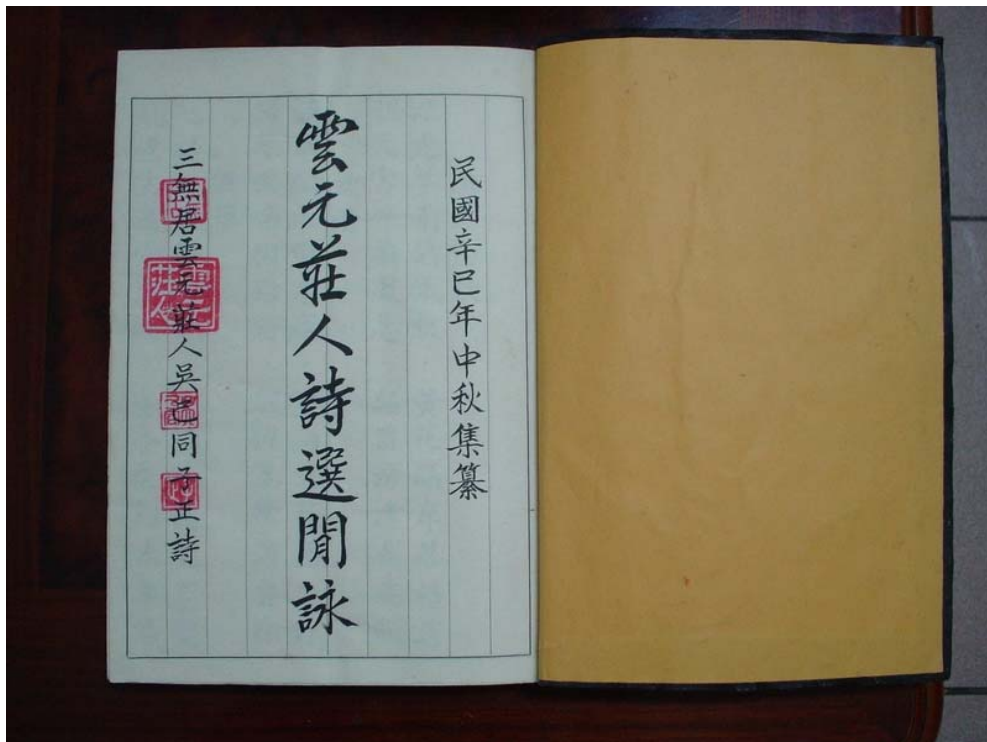 民國辛巳年中秋集纂
雲元莊人詩選閒詠
三無居雲元莊人吳同子正詩